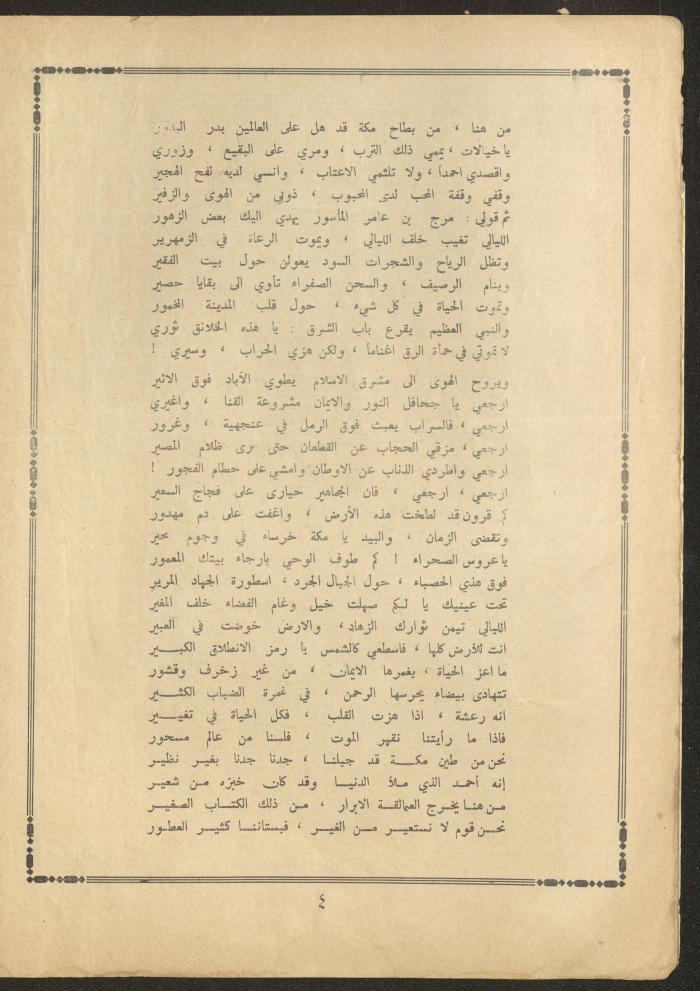 من هنا ، من بطاح مكة قد هل على العالمين بدر البدور
يا خيالات ، يممي ذلك الترب ، ومري على البقيع ، وزوري
واقصدي احمداً ، ولا تلثمي الاعتاب ، وانسي لديه لفح الهجير
وقفي وقفة المحب لدى المحبوب ، ذوبي من الهوى والزفير
ثم قولي : مرج بن عامر المأسور يهدي اليك بعض الزهور
الليالي تغيب خلف الليالي ، ويموت الرعاة في الزمهرير
وتظل الرياح والشجرات السود يعولن حول بيت الفقير
وينام الرصيف ، والسحن الصفراء تأوي الى بقايا حصير
وتموت الحياة في كل شيء ، حول قلب المدينة المخمور
والنبي العظيم يقرع باب الشرق : يا هذه الخلائق ثوري
لا تموتي في حمأة الرق اغناماً ، ولكن هزي الحراب ، وسيري !
ويروح الهوى الى مشرق الاسلام يطوي الآباد فوق الاثير
ارجعي يا جحافل النور والايمان مشروعة القنا ، واغيري
ارجعي ، فالسراب يعبث فوق الرمل في عنجهية ، وغرور
ارجعي ، مزقي الحجاب عن القطعان حتى ترى ظلام المصير
ارجعي واطردي الذئاب عن الاوطان وامشي على حطام الفجور !
ارجعي ، ارجعي ، فان الجماهير حيارى على فجاج السعير
كم قرون قد لطخت هذه الأرض ، واغفت على دم مهدور
وتقضى الزمان ، والبيد يا مكة خرساء في وجوم محير
يا عروس الصحراء ! كم طوف الوحي بارجاء بيتك المعمور
فوق هذي الحصباء ، حول الجبال الجرد ، اسطورة الجهاد المرير
تحت عينيك يا لكم صهلت خيل وغام الفضاء خلف المغير
الليالي تيمن ثوارك الزهاد، والارض خوضت في العبير
انت للأرض كلها ، فاسطعي كالشمس يا رمز الانطلاق الكبير
ما اعز الحياة ، يغمرها الايمان ، من غير زخرف وقشور
تتهادى بيضاء يحرسها الرحمن ، في غمرة الضباب الكثير
انه رعشة ، اذا هزت القلب ، فكل الحياة في تغيير
فاذا ما رأيتنا نقهر الموت ، فلسنا من عالم مسحور
نحن من طين مكة قد جبلنا ، جدنا جدنا بغير نظير
إنه أحمد الذي ملأ الدنيا وقد كان خبزه من شعير
من هنا يخرج العمالقة الابرار ، من ذلك الكتاب الصغير
نحن قوم لا نستعير من الغير ، فبستاننا كثير العطور
٤